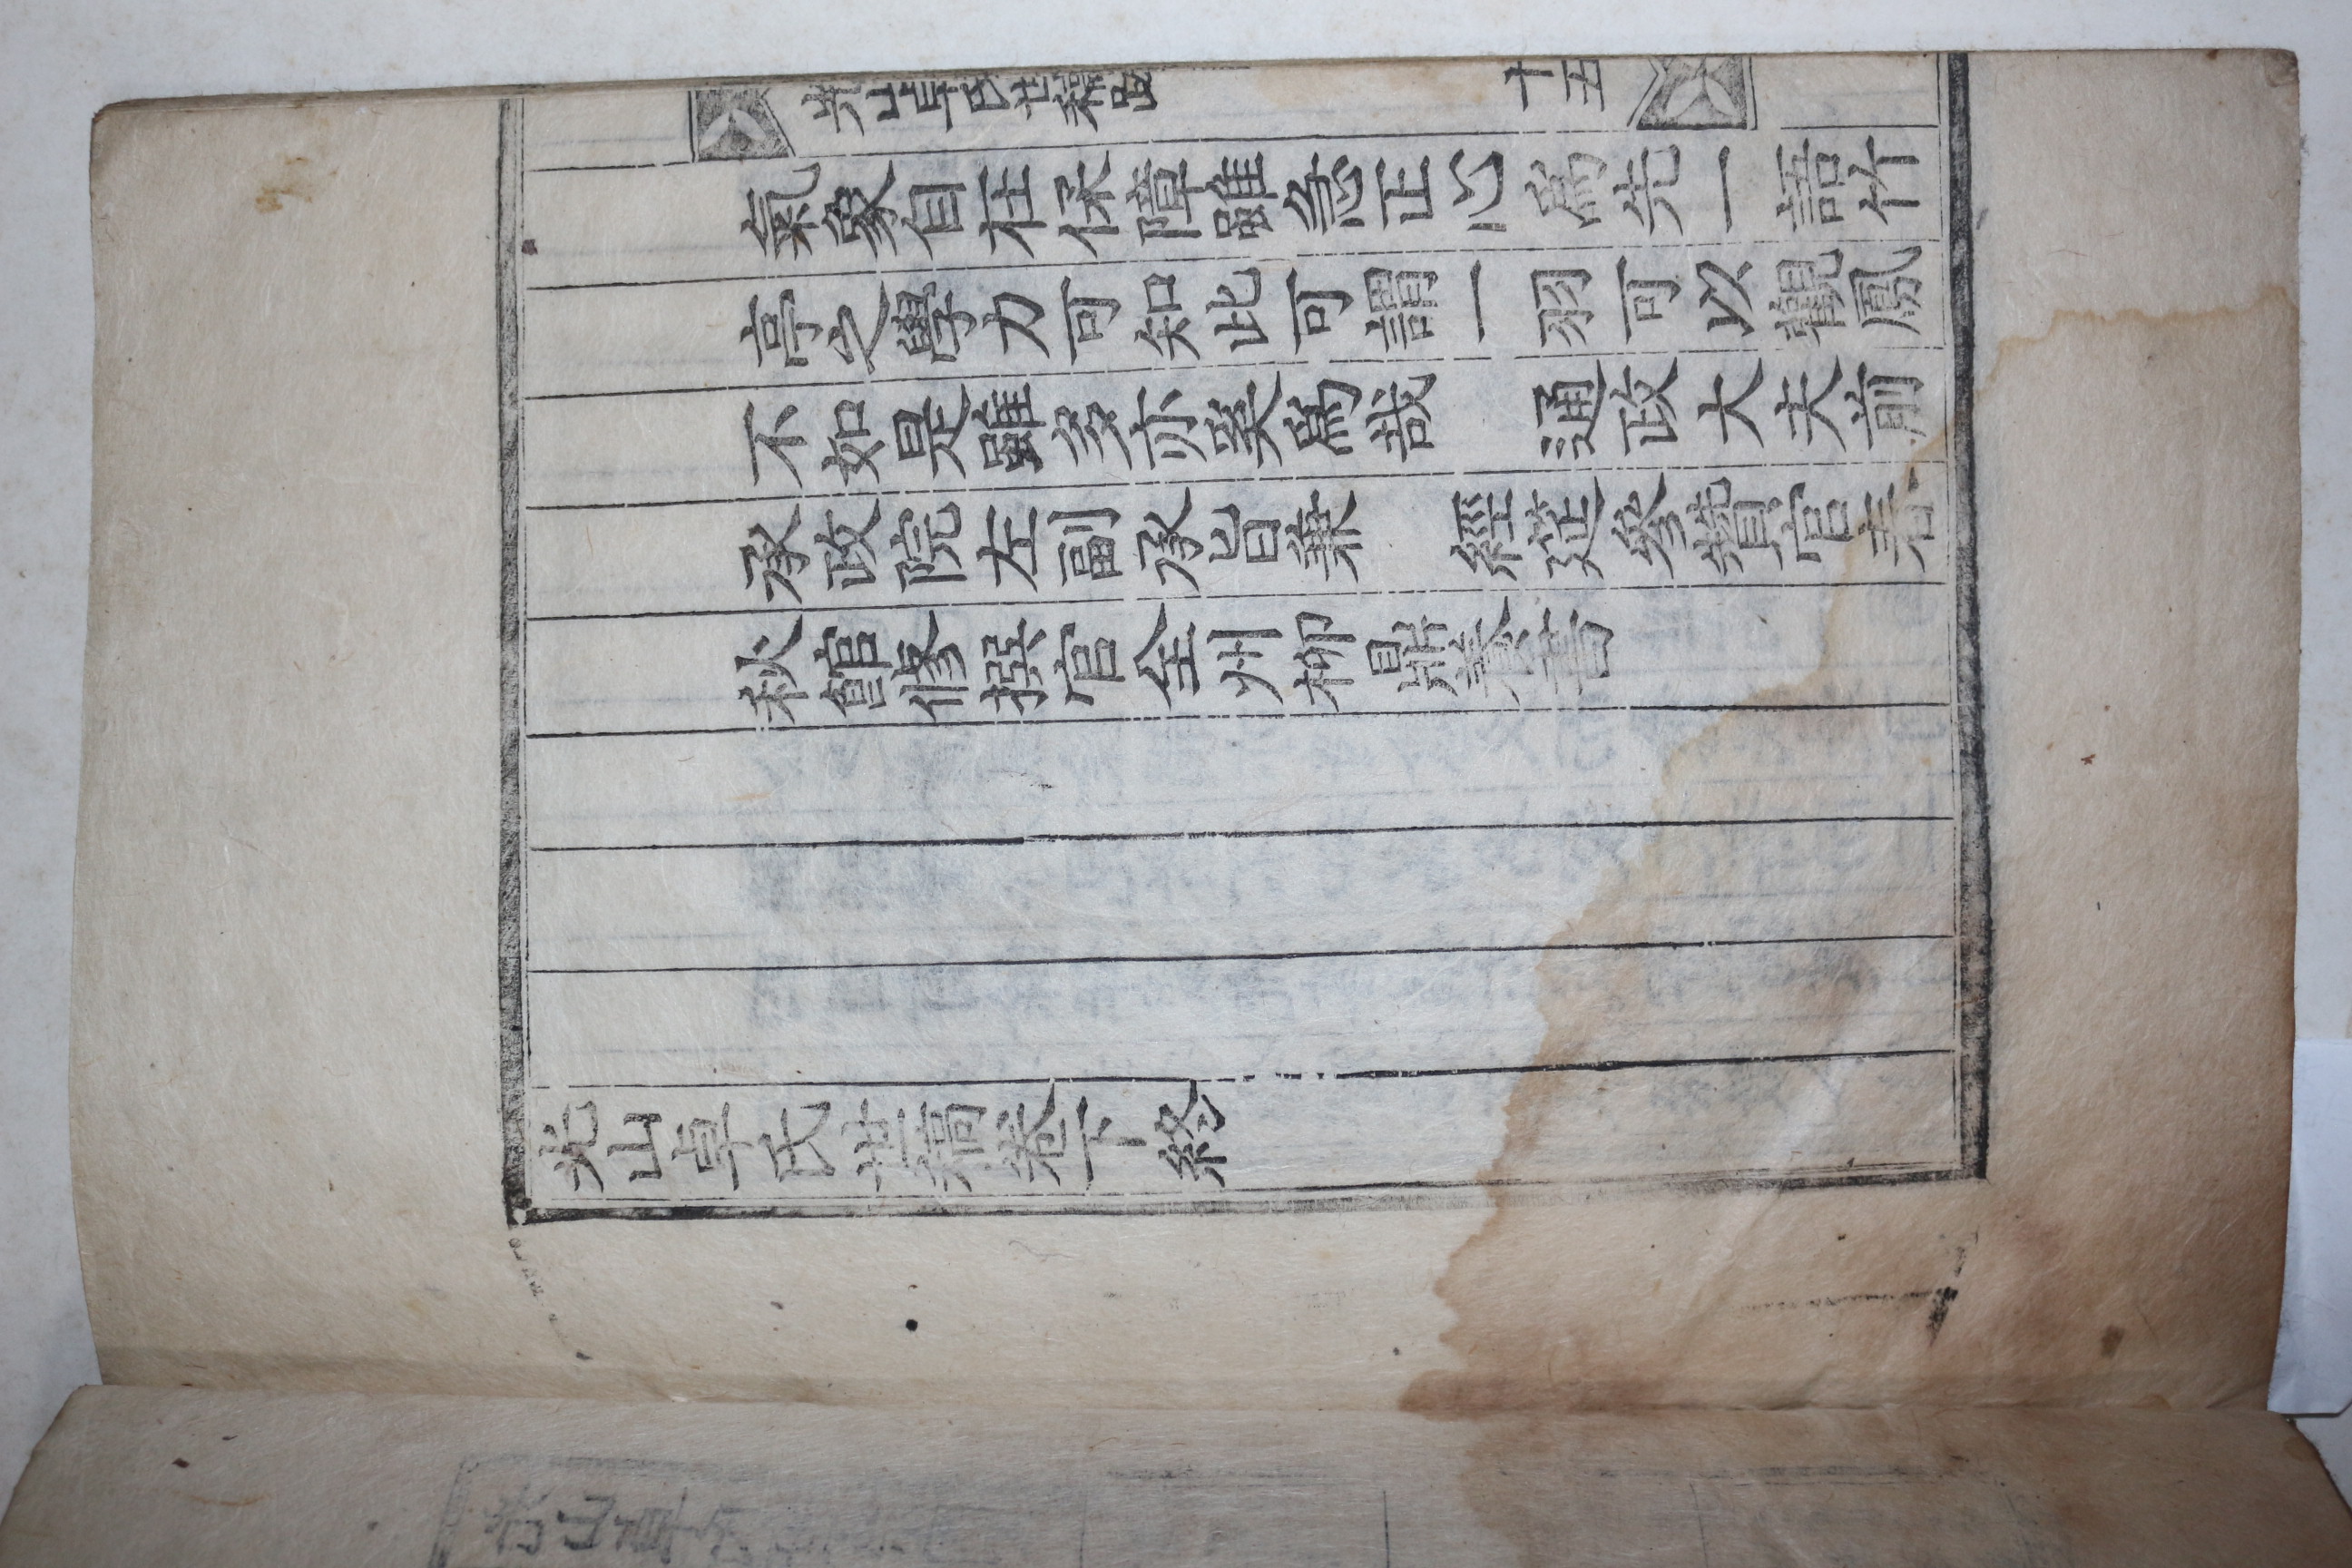 光山卓氏世稿跋 十五
氣象自在保障雖急正心爲先一語竹
亭之學力可知此可謂一羽可以觀鳳
不如是雖多亦奚爲哉 通政大夫前
承政院左副承旨兼 經筵參贊官春
秋館修撰官全州柳鼎養書
光山卓氏世稿卷下終